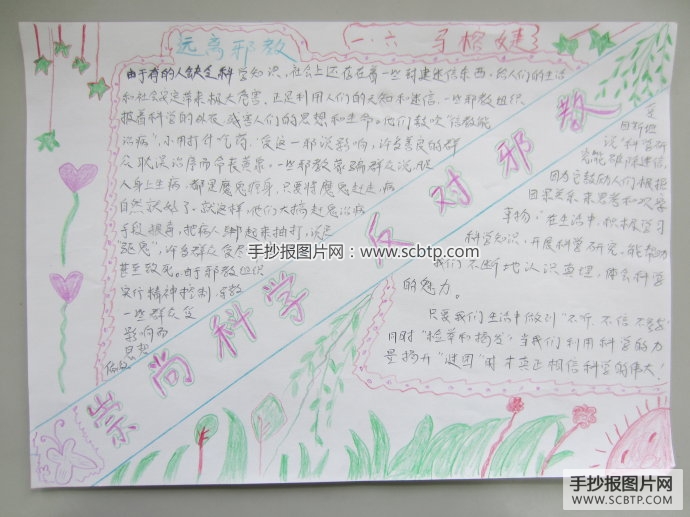 远离邪教
一.六
由于有的人缺乏科学知识,社会上还存在着一些封建迷信东西,给人们的生活
和社会安定带来极大危害。正是利用人们的无知和迷信,一些邪教组织
披着科学的外衣,残害人们的思想和生命。他们鼓吹"信教能
治病",不用打针吃药。受这一邪说影响,许多善良的群
众耽误治疗而命丧黄泉。一些邪教蒙骗群众说,肥
人身上生病,都是魔鬼附身,只要将魔鬼赶走,病
自然就好了。就这样,他们大搞赶鬼治病
手段狠毒,把病人绑起来抽打,说是
"驱鬼",许多群众受尽
甚至致死。由于邪教组织
实行精神控制,
一些群众受
影响而
崇尚科学 反对邪教
爱
因斯坦
说"科学研
究能破除迷信,
因为它鼓励人们根据
因果关系来思考和观察
事物"在生活中,积极学习
科学知识,开展科学研究,能帮助
我们不断地认识真理,体会科学
的魅力。
只要我们生活中做到"不听、不信、不
同时"检举和揭发"当我们利用科学的力
量揭开"谜团"时才真正相信科学的伟大!
手抄报图片网:www.scbtp.com
手抄报图片网
WWW.SCBTP.COM